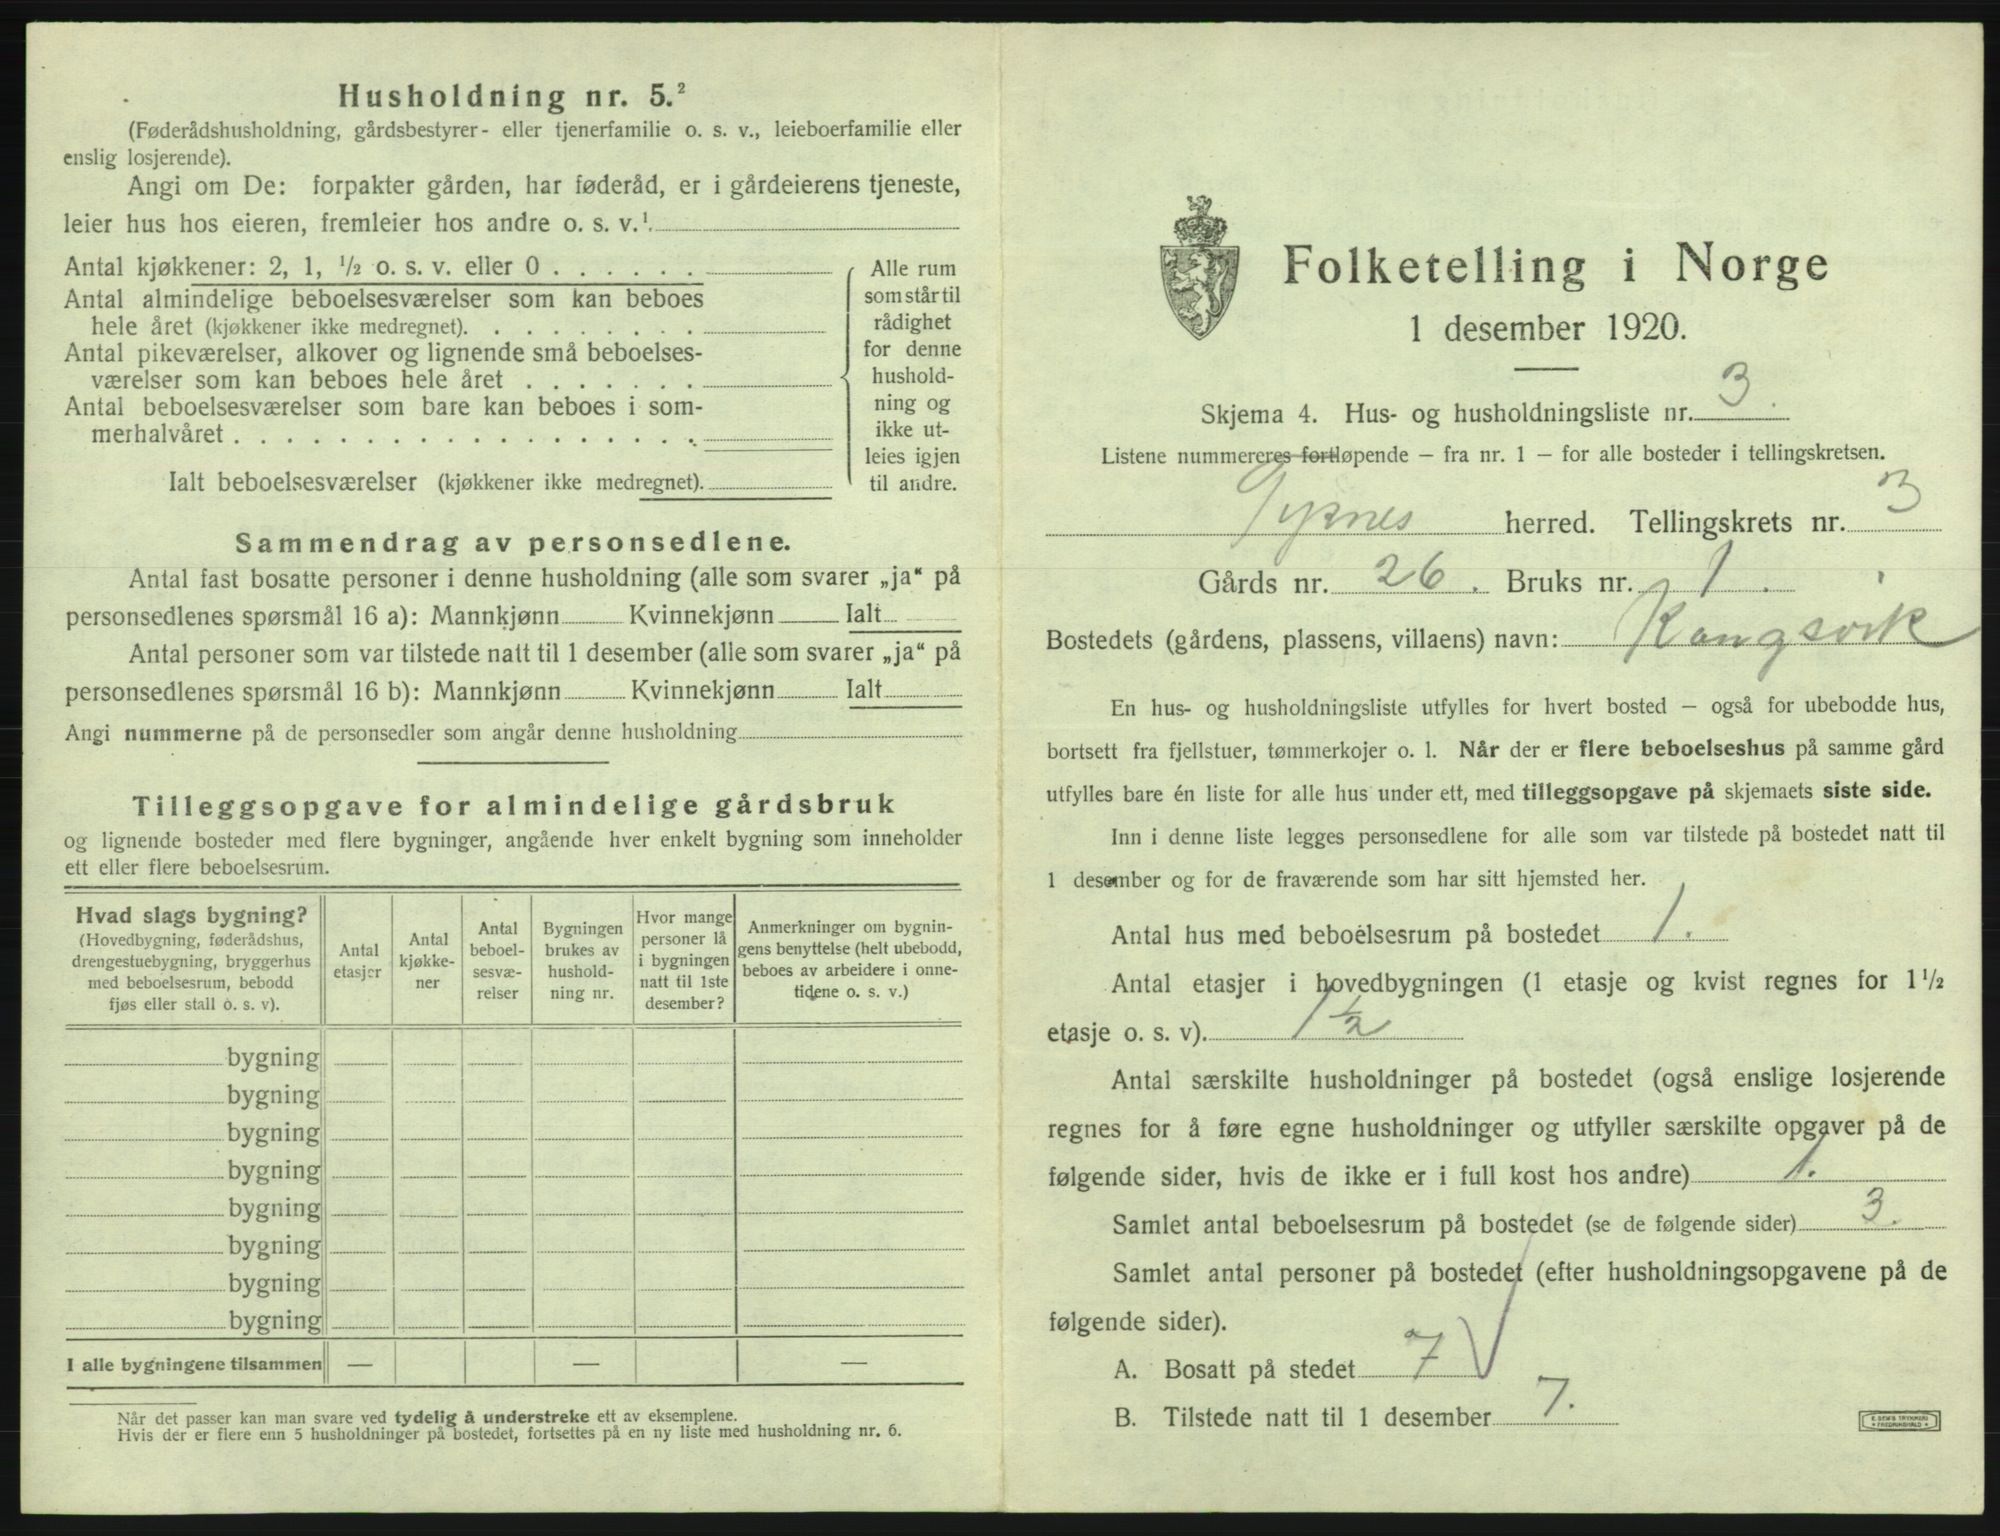 Husholdning nr. 5.²
(Føderådshusholdning, gårdsbestyrer- eller tjenerfamilie o. s. v., leieboerfamilie eller
enslig losjerende).
Angi om De: forpakter gården, har føderåd, er i gårdeierens tjeneste,
leier hus hos eieren, fremleier hos andre o. s. v.¹
Antal kjøkkener: 2, 1, ½ o. s. v. eller 0
Antal almindelige beboelsesværelser som kan beboes
hele året (kjøkkener ikke medregnet).
Antal pikeværelser, alkover og lignende små beboelses-
værelser som kan beboes hele året
Antal beboelsesværelser som bare kan beboes i som-
merhalvåret
Ialt beboelsesværelser (kjøkkener ikke medregnet).
Alle rum
som står til
rådighet
for denne
hushold-
ning og
ikke ut-
leies igjen
til andre.
Sammendrag av personsedlene.
Antal fast bosatte personer i denne husholdning (alle som svarer „ja“ på
personsedlenes spørsmål 16 a): Mannkjønn Kvinnekjønn Ialt
Antal personer som var tilstede natt til 1 desember (alle som svarer „ja“ på
personsedlenes spørsmål 16 b): Mannkjønn Kvinnekjønn Ialt
Angi nummerne på de personsedler som angår denne husholdning
Tilleggsopgave for almindelige gårdsbruk
og lignende bosteder med flere bygninger, angående hver enkelt bygning som inneholder
ett eller flere beboelsesrum.
Hvad slags bygning?
(Hovedbygning, føderådshus,
drengestuebygning, bryggerhus
med beboelsesrum, bebodd
fjøs eller stall o. s. v).
Antal
etasjer
Antal
kjøkke-
ner
Antal
beboel-
sesvæ-
relser
Bygningen
brukes av
hushold-
ning nr.
Hvor mange
personer lå
i bygningen
natt til 1ste
desember?
Anmerkninger om bygnin-
gens benyttelse (helt ubebodd,
beboes av arbeidere i onne-
tidene o. s. v.)
bygning
bygning
bygning
bygning
bygning
bygning
bygning
bygning
I alle bygningene tilsammen — — —
Når det passer kan man svare ved tydelig å understreke ett av eksemplene.
Hvis der er flere enn 5 husholdninger på bostedet, fortsettes på en ny liste med husholdning nr. 6.
Folketelling i Norge
1 desember 1920.
Skjema 4. Hus- og husholdningsliste nr. 3.
Listene nummereres fortløpende – fra nr. 1 – for alle bosteder i tellingskretsen.
Tysnes herred. Tellingskrets nr. 3
Gårds nr. 26. Bruks nr. 1.
Bostedets (gårdens, plassens, villaens) navn: Kongsvik
En hus- og husholdningsliste utfylles for hvert bosted – også for ubebodde hus,
bortsett fra fjellstuer, tømmerkojer o. l. Når der er flere beboelseshus på samme gård
utfylles bare én liste for alle hus under ett, med tilleggsopgave på skjemaets siste side.
Inn i denne liste legges personsedlene for alle som var tilstede på bostedet natt til
1 desember og for de fraværende som har sitt hjemsted her.
Antal hus med beboelsesrum på bostedet 1.
Antal etasjer i hovedbygningen (1 etasje og kvist regnes for 1½
etasje o. s. v). 1½
Antal særskilte husholdninger på bostedet (også enslige losjerende
regnes for å føre egne husholdninger og utfyller særskilte opgaver på de
følgende sider, hvis de ikke er i full kost hos andre) 1.
Samlet antal beboelsesrum på bostedet (se de følgende sider) 3.
Samlet antal personer på bostedet (efter husholdningsopgavene på de
følgende sider).
A. Bosatt på stedet 7
B. Tilstede natt til 1 desember 7.
E. SEM'S TRYKKERI
FREDRIKSHALD